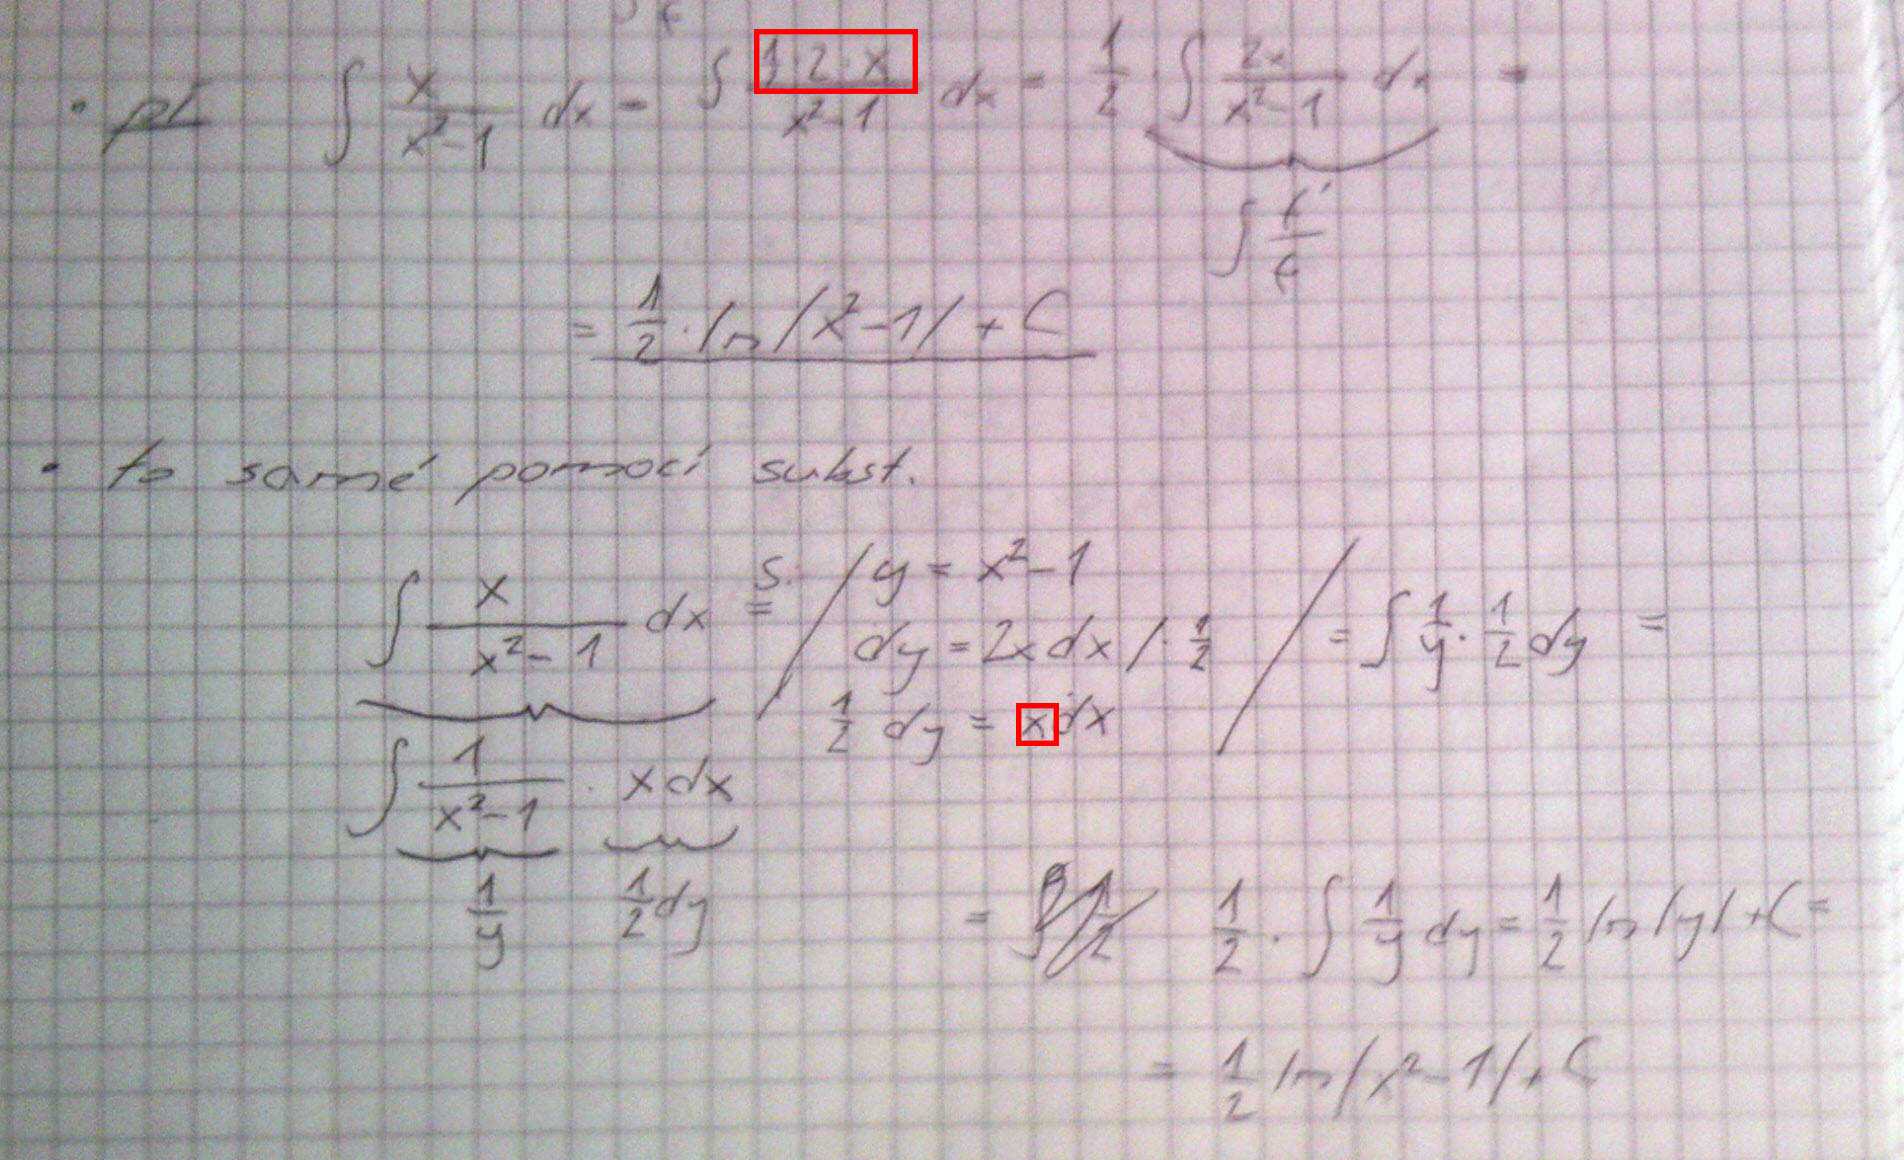 • př. ∫ x/(x²-1) dx = ∫ (1·2·x)/(x²-1) dx = 1/2 · ∫ 2x/(x²-1) dx =
∫ f'/f
= 1/2 · ln|x²-1| + C
• to samé pomocí subst.
∫ x/(x²-1) dx =ˢ· / y = x²-1
dy = 2x dx /· 1/2 / = ∫ 1/y · 1/2 dy =
1/2 dy = x dx
∫ 1/(x²-1) · x dx
1/y 1/2 dy
= 1/2 · ∫ 1/y dy = 1/2 ln|y| + C =
= 1/2 ln|x²-1| + C